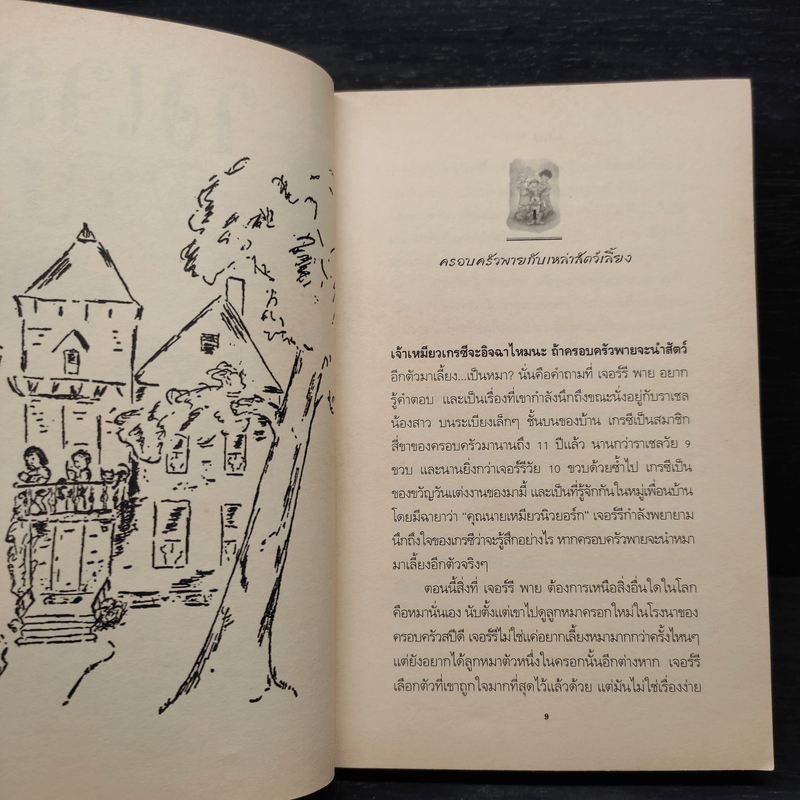 ครอบครัวพายกับเหล่าสัตว์เลี้ยง
เจ้าเหมียวเกรซีจะอิจฉาไหมนะ ถ้าครอบครัวพายจะนำสัตว์
อีกตัวมาเลี้ยง...เป็นหมา? นั่นคือคำถามที่ เจอร์รี พาย อยาก
รู้คำตอบ และเป็นเรื่องที่เขากำลังนึกถึงขณะนั่งอยู่กับราเชล
น้องสาว บนระเบียงเล็กๆ ชั้นบนของบ้าน เกรซีเป็นสมาชิก
สี่ขาของครอบครัวมานานถึง 11 ปีแล้ว นานกว่าราเชลวัย 9
ขวบ และนานยิ่งกว่าเจอร์รีวัย 10 ขวบด้วยซ้ำไป เกรซีเป็น
ของขวัญวันแต่งงานของมามี้ และเป็นที่รู้จักกันในหมู่เพื่อนบ้าน
โดยมีฉายาว่า “คุณนายเหมียวนิวยอร์ก” เจอร์รีกำลังพยายาม
นึกถึงใจของเกรซีว่าจะรู้สึกอย่างไร หากครอบครัวพายจะนำหมา
มาเลี้ยงอีกตัวจริงๆ
ตอนนี้สิ่งที่ เจอร์รี พาย ต้องการเหนือสิ่งอื่นใดในโลก
คือหมานั่นเอง นับตั้งแต่เขาไปดูลูกหมาครอกใหม่ในโรงนาของ
ครอบครัวสปีดี เจอร์รีไม่ใช่แค่อยากเลี้ยงหมามากกว่าครั้งไหนๆ
แต่ยังอยากได้ลูกหมาตัวหนึ่งในครอกนั้นอีกต่างหาก เจอร์รี
เลือกตัวที่เขาถูกใจมากที่สุดไว้แล้วด้วย แต่มันไม่ใช่เรื่องง่าย
9